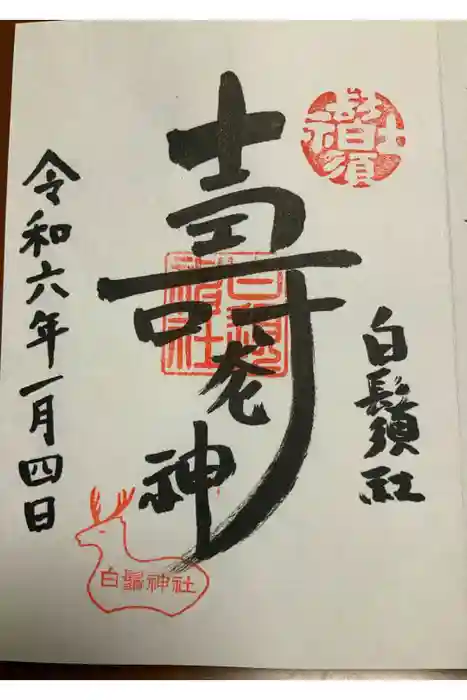 白鬚社
白鬚社
壽老神
白鬚神社
令和六年一月四日